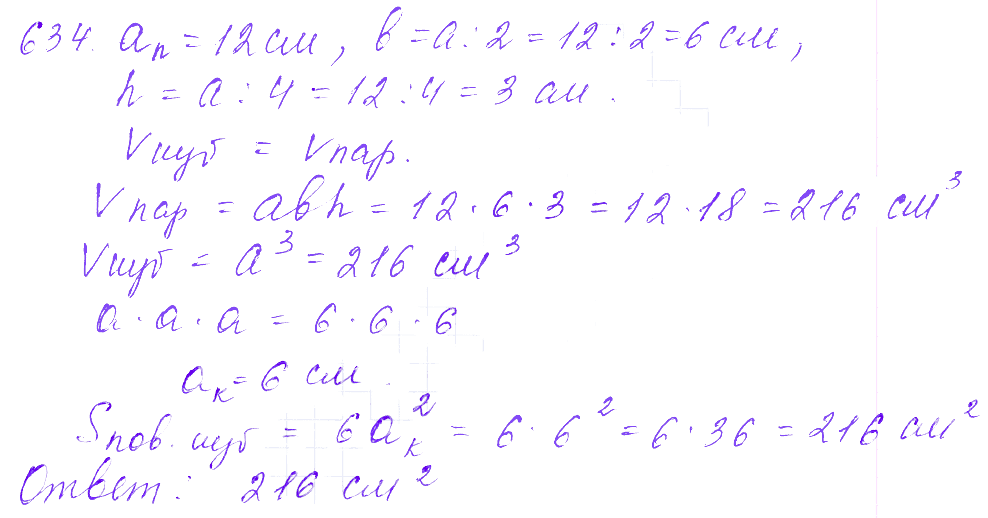 634. aп = 12 см, в = a : 2 = 12 : 2 = 6 см,
h = a : 4 = 12 : 4 = 3 см.
Vкуб = Vпар.
Vпар = aвh = 12 · 6 · 3 = 12 · 18 = 216 см³
Vкуб = a³ = 216 см³
a · a · a = 6 · 6 · 6
aк = 6 см.
Sпов. куб = 6aк² = 6 · 6² = 6 · 36 = 216 см²
Ответ: 216 см²